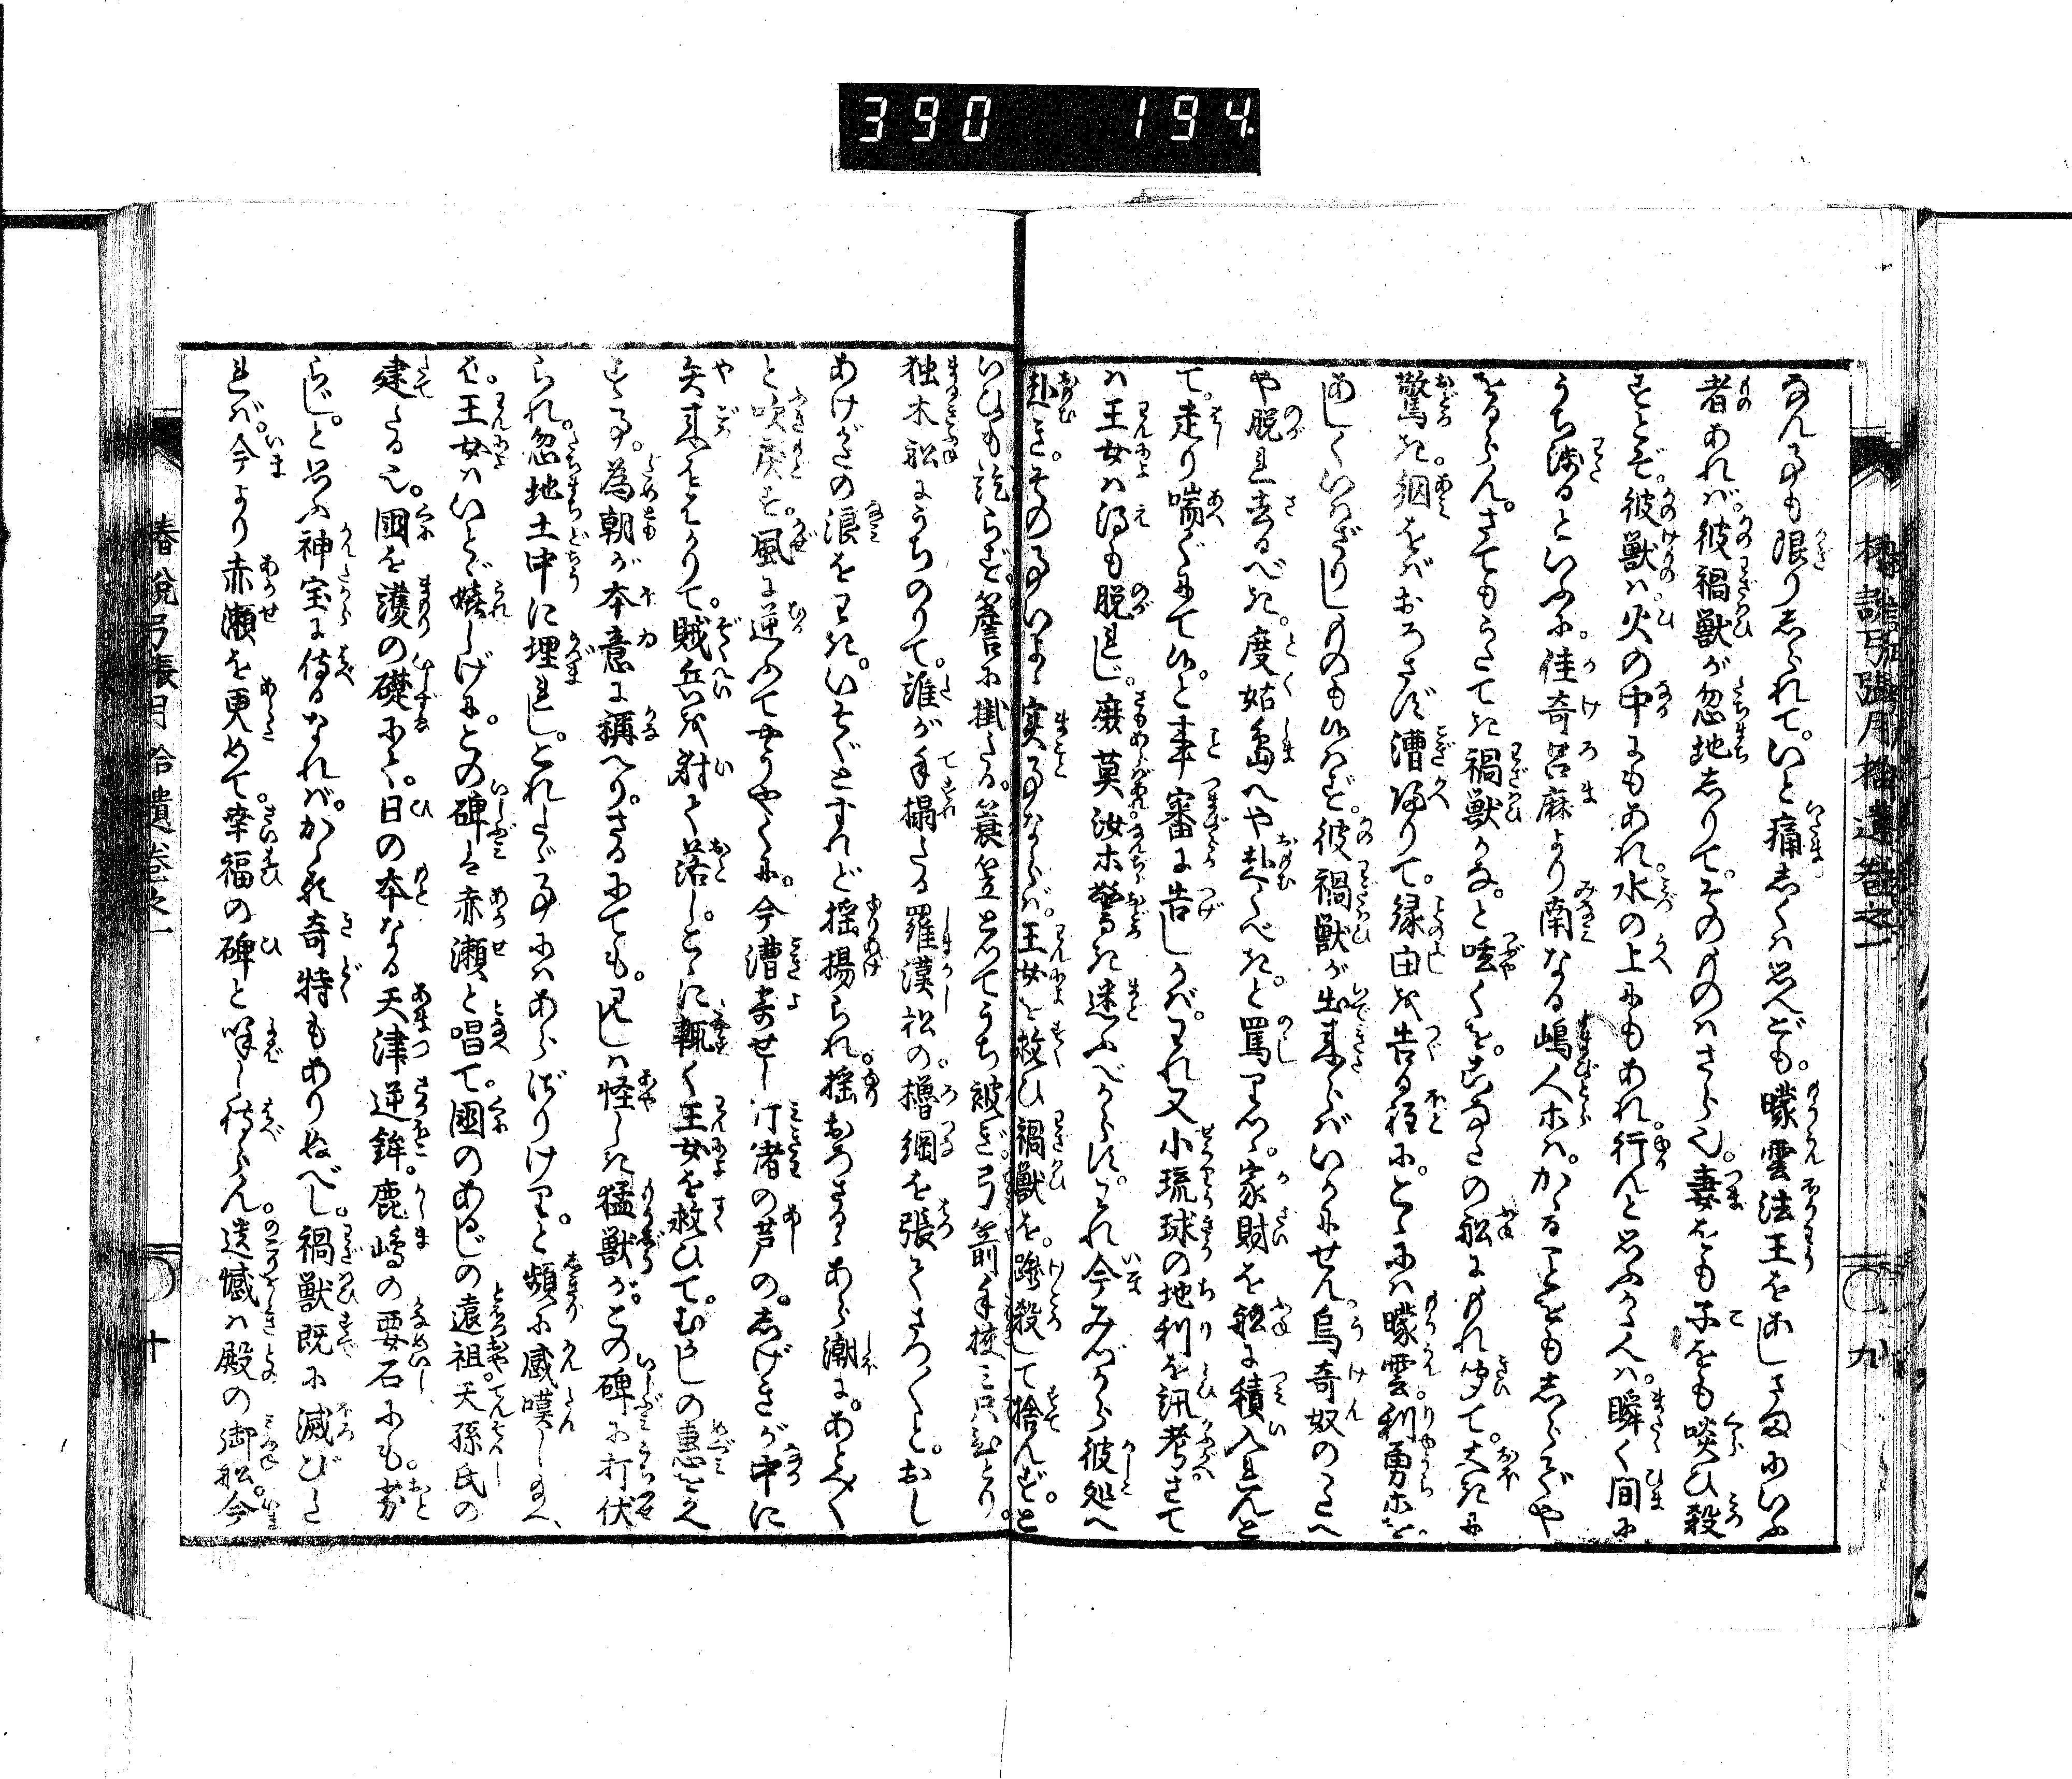 390 194.
椿説弓張月拾遺巻之一 ○九
なん事も限りしられて。いと痛しくは思へども。曚雲法王をあしさまにいふ
者あれば。彼禍獣が忽地しりて。そのものはさら也。妻をも子をも啖ひ殺
すとぞ。彼獣は火の中にもあれ。水の上にもあれ。行んと思ふかたへは。瞬く間に
うち渉るといふに。佳奇呂麻より南なる嶋人ホは。かゝることをもしらでや
をるらん。さてもうたてき禍獣かな。と呟くを。あなたの舩にもれ聞て。大きに
驚き。網をばおろさず漕かへりて。縁由を告る程に。こゝには曚雲利勇ホを
あしくいはざりしものも候はず。彼禍獣が出来らばいかにせん。烏奇奴のかたへ
や脱れ去るべき。度姑島へや赴くべき。と罵りあひ。家財を舩に積入れんと
て。走り喘ぐにて候。と事審に告しかば。われ又小琉球の地利を訊考。さて
は王女は得も脱れじ。廢莫汝ホ驚き迷ふべからず。われ今みづから彼処へ
赴き。その事いよゝ実事ならば。王女を救ひ禍獣を。蹴殺して捨んず。と
いひも訖らず。簷に掛たる。蓑笠とつてうち被ぎ。弓箭手挟み只ひとり。
独木舩にうちのりて。誰が手搨たる羅漢松の。櫓綱を張てさつ〳〵と。おし
あけがたの浪をわき。いそぐとすれど揺揚られ。揺おろさるゝあら潮に。あとへ〳〵
と吹戻す。風に逆ふてやうやくに。今漕寄せし汀渚の芦の。しげきが中に
矢来をはかりて。賊兵を射て落し。こゝに輒く王女を救ひて。むかしの恵をかへ
す事。為朝が本意に稱へり。さるにても。見しは怪しき猛獣が。この碑に打伏
られ。忽地土中に埋れし。これたゞ事にはあらざりけり。と頻に感嘆し給へ
ば。王女はいとゞ嬉しげに。この碑は赤瀬と唱て。國のあるじの遠祖。天孫氏の
建たる也。國を護の礎にて。日の本なる天津逆鉾。鹿嶋の要石にも。劣
らじ。と思ふ神宝に侍るなれば。かゝる奇特もありぬべし。禍獣既に滅びた
れば。今より赤瀬を更めて。幸福の碑と呼し侍らん。遺憾は殿の御舩。今
椿説弓張月拾遺巻之一 ○十